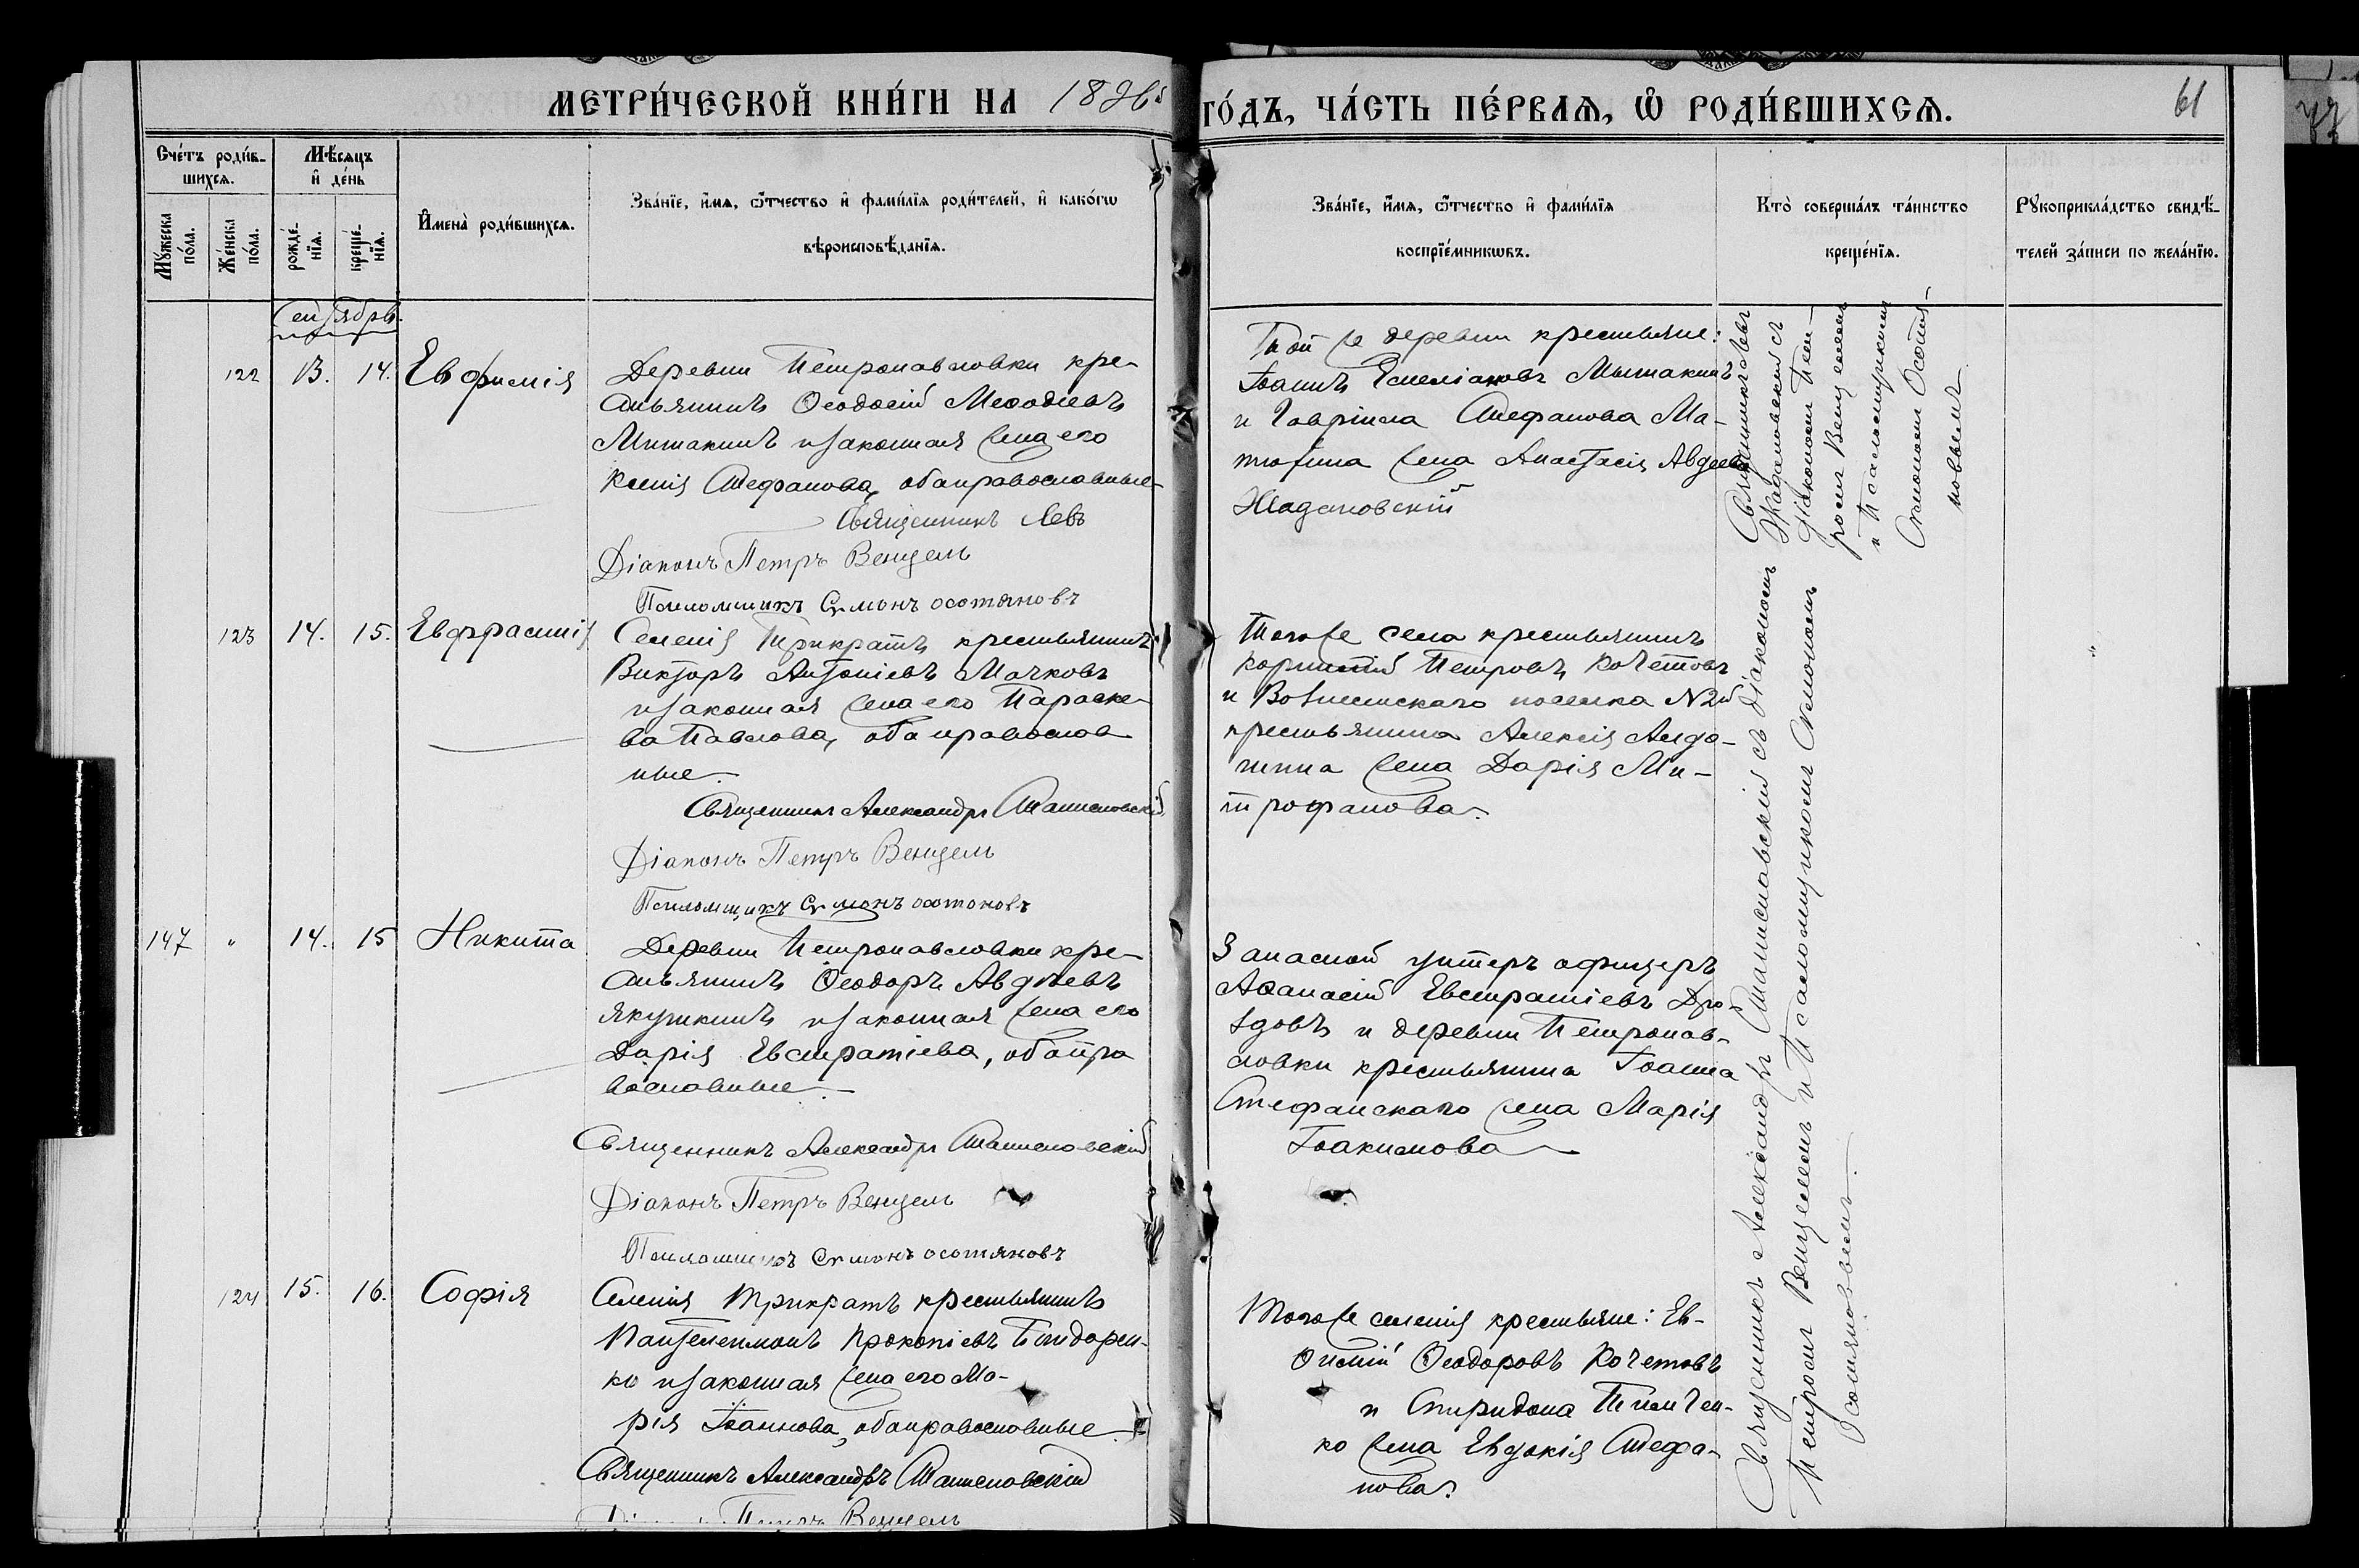 МЕТРИ́ЧЕСКОЙ КНИ́ГИ НА 1896й
ГО́ДЪ, ЧА́СТЬ ПЕ́РВАѦ, Ѽ РОДИ́ВШИХСѦ. 61
Сче́тъ роди́в-
шихсѧ.
Мѣ́сѧцъ
и҆ де́нь
Мꙋ́жеска
по́ла.
Же́нска
по́ла.
рожде́-
нїѧ.
креще́-
нїѧ.
И҆мена̀ роди́вшихсѧ.
Зва́нїе, и҆́мѧ, ѻ҆́тчество и҆ фами́лїѧ роди́телей, и҆ како́гѡ
вѣроисповѣ́данїѧ.
Зва́нїе, и҆́мѧ, ѻ҆́тчество и҆ фами́лїѧ
воспрїе́мникѡвъ.
Кто̀ соверша́лъ та́инство
креще́нїѧ.
Рꙋкоприкла́дство свидѣ́-
телей за́писи по жела́нїю.
Сентябрь.
122 13. 14. Евфимія
Деревни Петропавловки кре-
стьянинъ Ѳеодосій Меѳодіевъ
Митакинъ и законная жена его
Ксенія Стефанова, оба православные
Священникъ Левъ
Діаконъ Петръ Венцель
Псаломщикъ Сѵмонъ Осотяновъ
Той же деревни крестьяне:
Іоаннъ Емеліановъ Мытакинъ
и Гавріила Стефанова Ма-
тюхина жена Анастасія Авдеева
Ждановскій
Священникъ Левъ
Ждановскій съ
діакономъ Пет-
ромъ Венцелемъ
и Псаломщикомъ
Сѵмономъ Осотя-
новымъ
123 14. 15. Евфрасинія
Селенія Трикратъ крестьянинъ
Викторъ Антоніевъ Мачковъ
и законная жена его Параске-
ва Павлова, оба православ
ные.
Священникъ Александръ Станиславскій
Діаконъ Петръ Венцель
Псаломщикъ Сѵмонъ Осотяновъ
Того же села крестьянинъ
Корнилій Петровъ Кочетовъ
и Вознесенскаго поселка N 2й
крестьянина Алексія Алдо-
нина жена Дарія Ми-
трофанова.
147 " 14. 15 Никита
Деревни Петропавловки кре-
стьянинъ Ѳеодоръ Авдѣевъ
Якушкинъ и законная жена его
Дарія Евстратіева, оба пра
вославные.
Священникъ Александръ Станиславскій
Діаконъ Петръ Венцель
Псаломщикъ Сѵмонъ Осотяновъ
Запасной унтеръ офицеръ
Аѳанасій Евстратіевъ Дро-
здовъ и деревни Петропав-
ловки крестьянина Іоанна
Стефанскаго жена Марія
Іоакимова
124 15. 16. Софія
Селенія Трикратъ крестьянинъ
Пантелеимонъ Прокопіевъ Бондарен-
ко и законная жена его Ма-
рія Іоаннова, оба православные.
Священникъ Александръ Станиславскій
Діаконъ Петръ Венцель
Того же селенія крестьяне: Ев-
ѳимій Ѳеодоровъ Кочетовъ
и Спиридона Тимчен-
ко жена Евдокія Стефа-
нова.
Священникъ Александръ Станиславскій съ діакономъ
Петромъ Венцелемъ и Псаломщикомъ Сѵмономъ
Осотяновымъ.